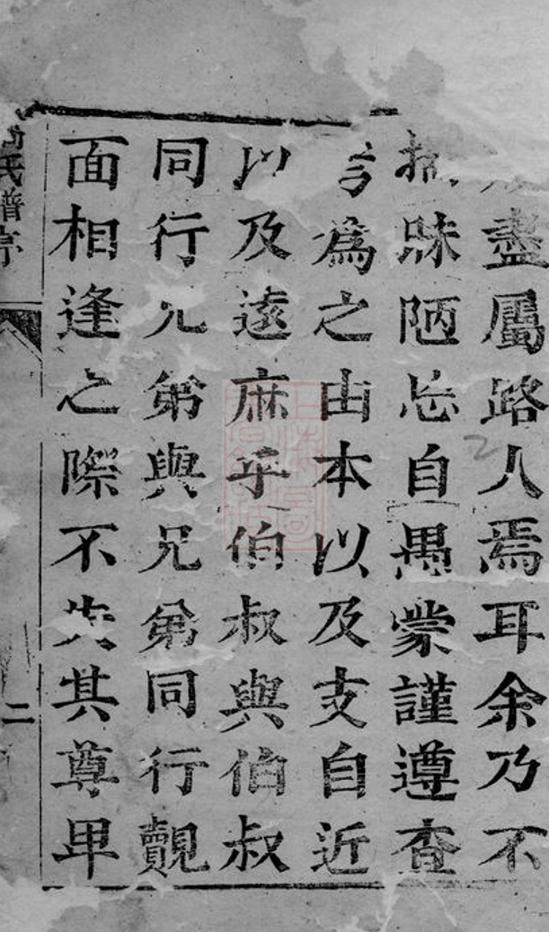 盡屬路人焉耳余乃不
揣昧陋忘自愚蒙謹遵查
考為之由本以及支自近
以及遠庶乎伯叔與伯叔
同行兄弟與兄弟同行覿
面相逢之際不失其尊卑
氏譜序
二